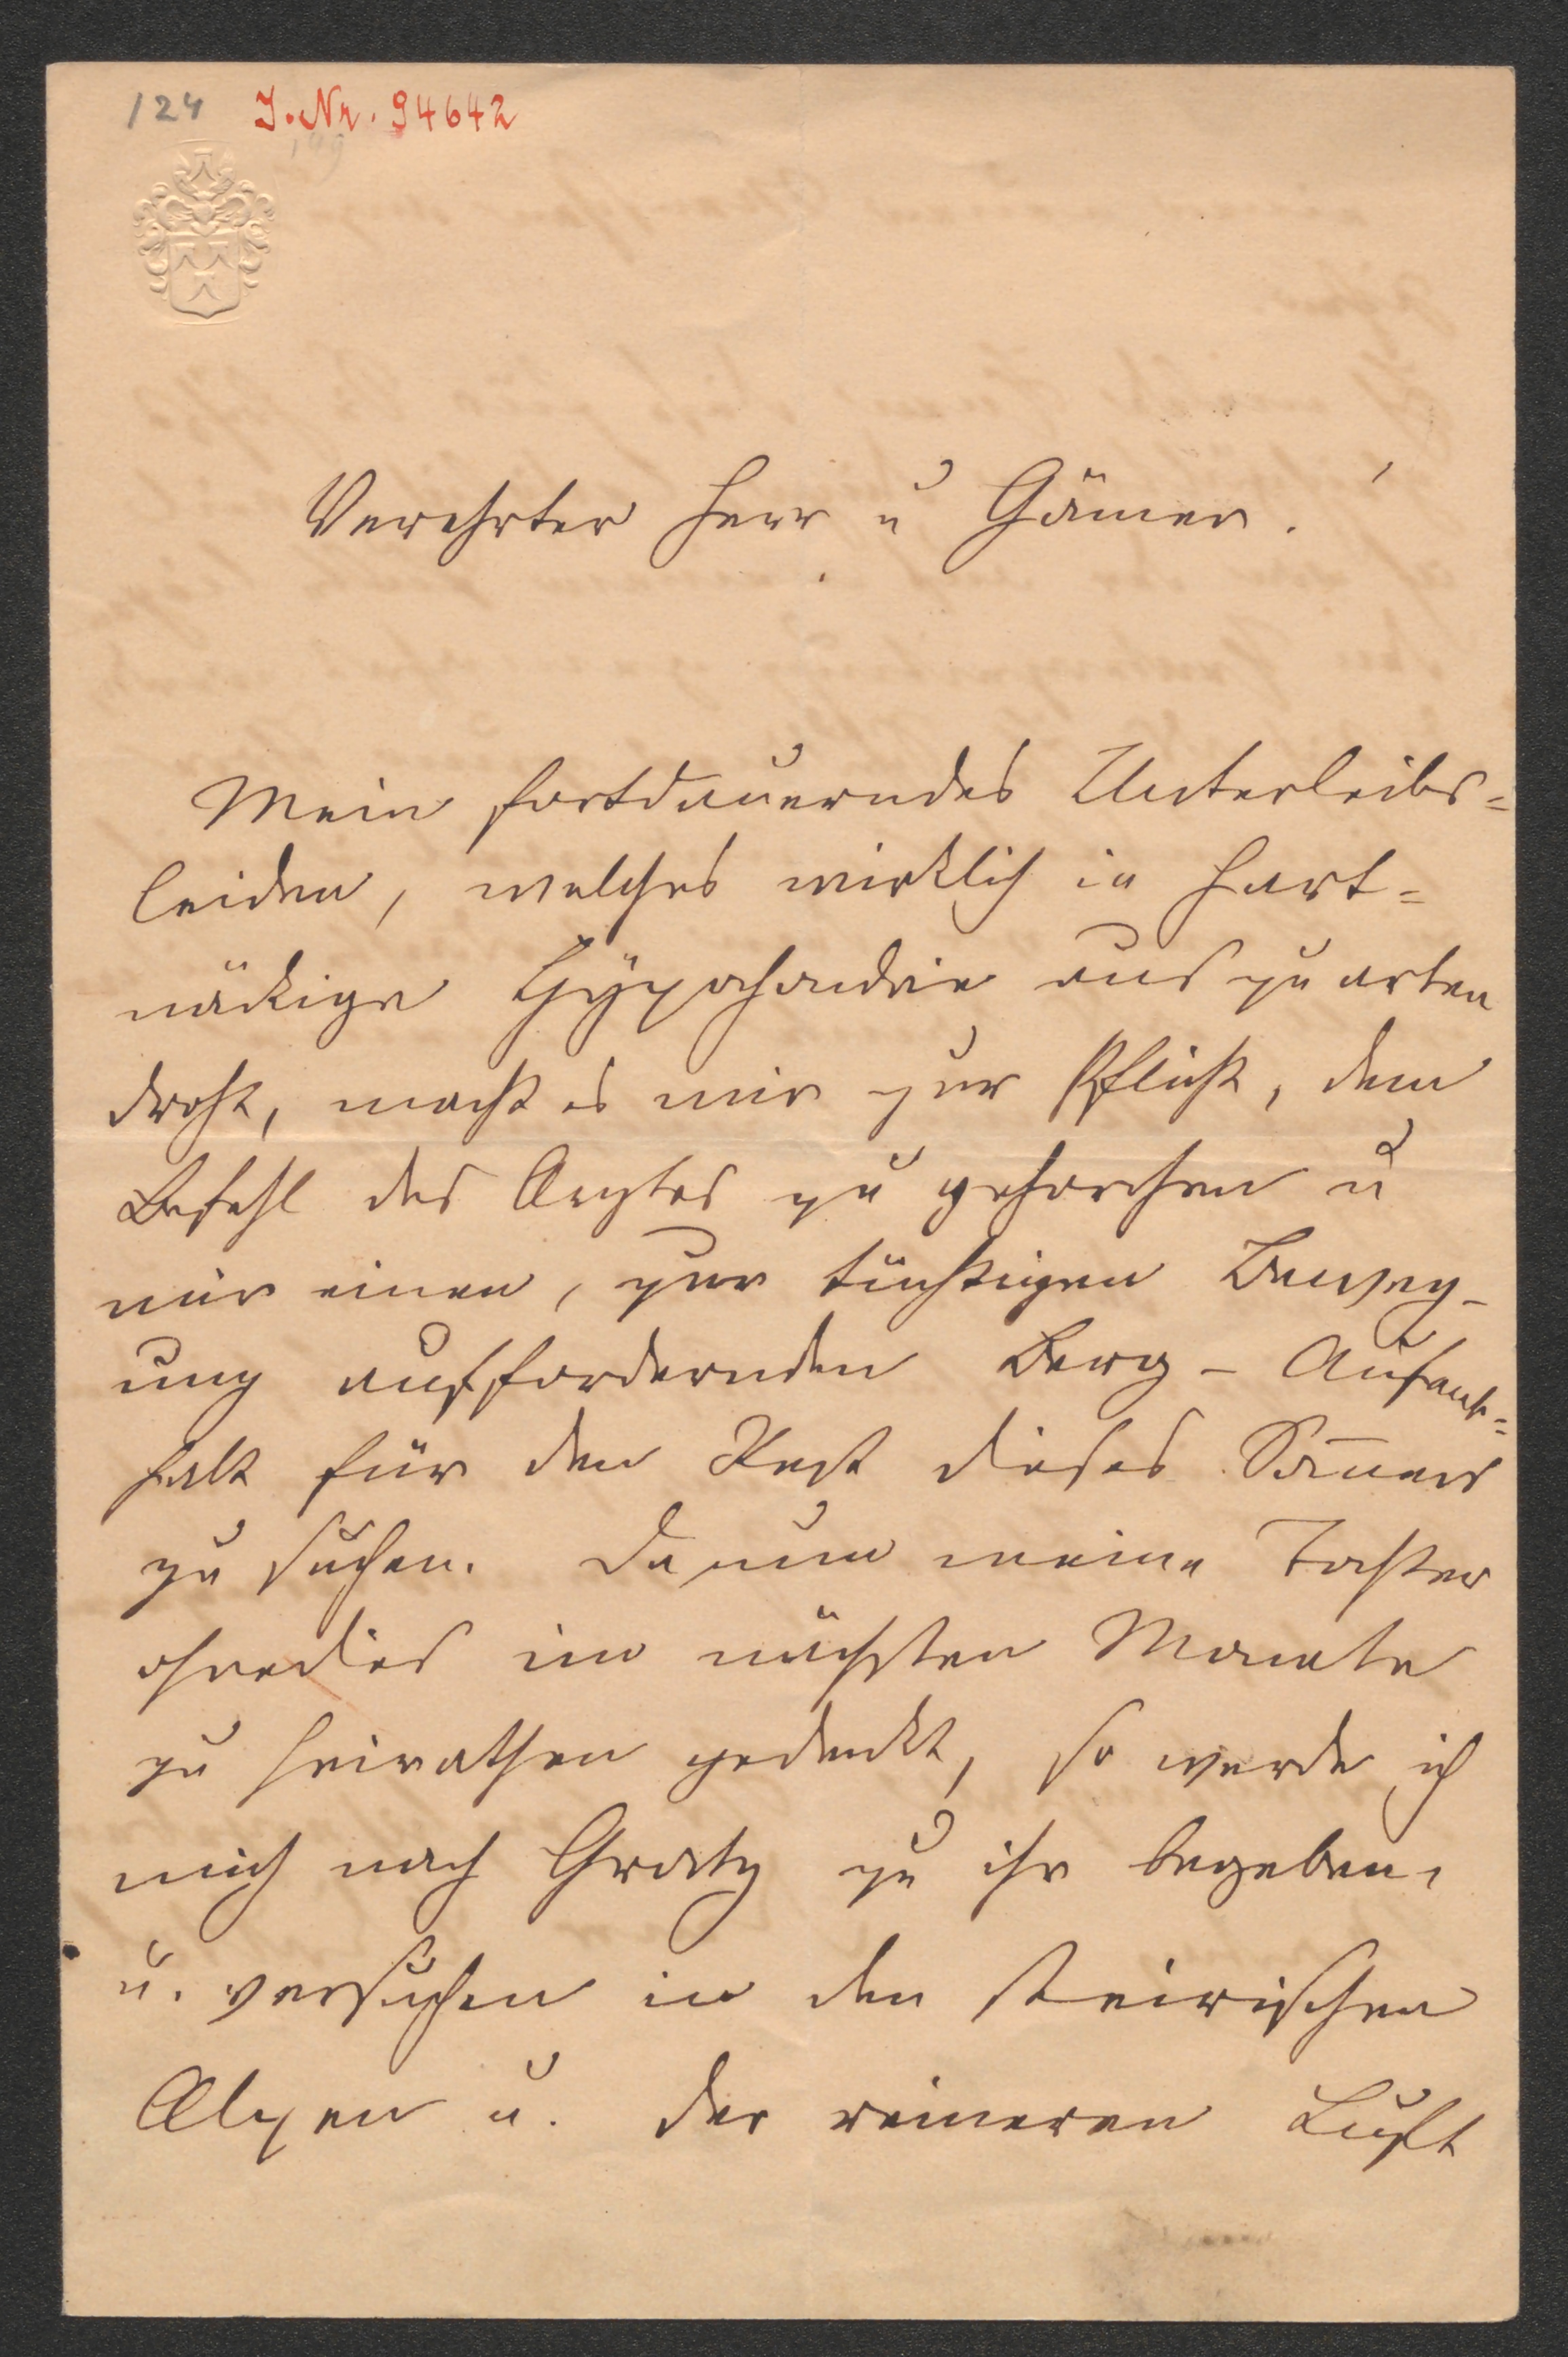 124 J. Nr. 94642
199
Verehrter Herr u Gönner!
Mein fortdauerndes Unterleibs=
leiden, welches wirklich in hart=
näckige Hÿpochondrie auszuarten
droht, macht es mir zur Pflicht, dem
Befehl des Arztes zu gehorchen u
mir einen, zur tüchtigen Beweg-
ung auffordernden Berg-Aufent=
halt für den Rest dieses Som̅ers
zu suchen. Da nun meine Tochter
ohnedies im nächsten Monate
zu heirathen gedenkt, so werde ich
mich nach Gratz zu ihr begeben,
u. versuchen in den steirischen
Alpen u. der reineren Luft